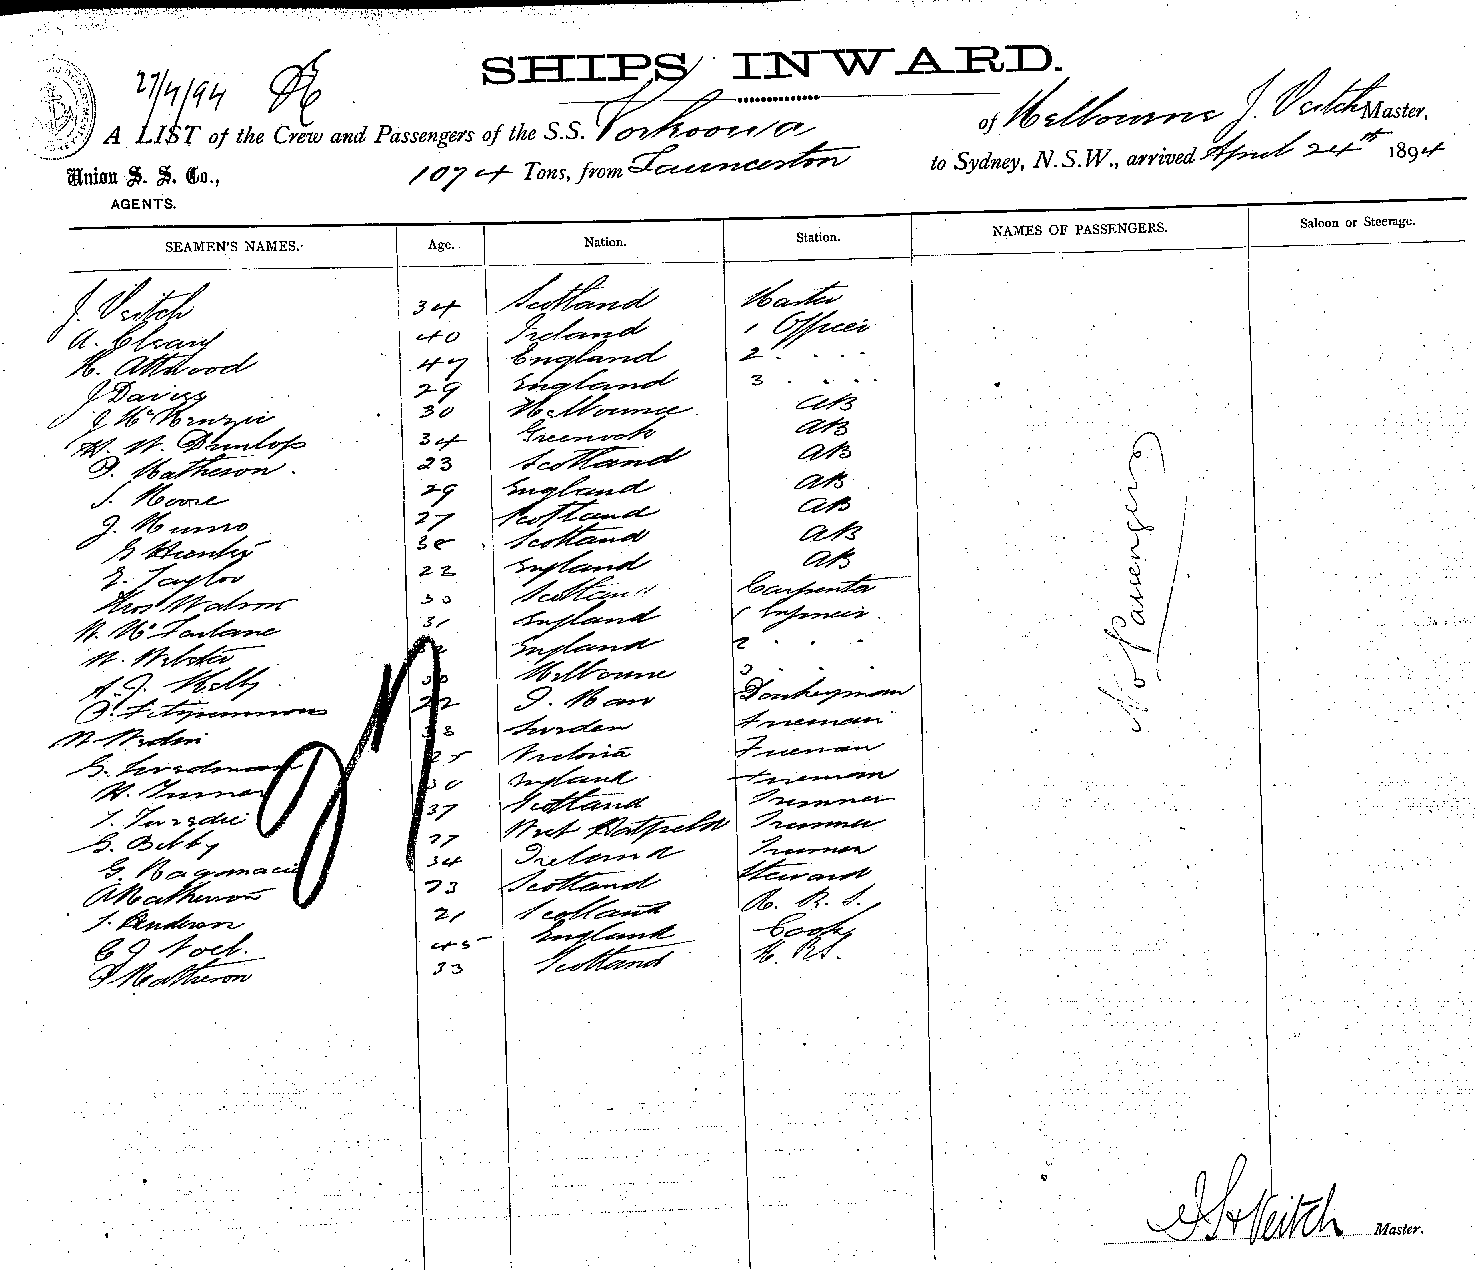 SHIPS INWARD.
27/4/94
A LIST of the Crew and Passengers of the S.S. of Melbourne J. Veitch Master,
Union S. S. Co., 1074 Tons, from Launceston to Sydney, N.S.W., arrived April 24th 1894
AGENTS.
SEAMEN'S NAMES. Age. Nation. Station. NAMES OF PASSENGERS. Saloon or Steerage.
J. Veitch 34 Scotland Master
A. Cleary 40 Ireland 1 Officer
H. Attwood 47 England 2 . . . .
J Davies 29 England 3 . . . .
J McKenzie 30 Melbourne AB
W. Dunlop 34 Greenock AB
Matheson. 23 Scotland AB
Moore 29 England AB
J. Munro 27 Scotland AB
G Hunter 38 Scotland AB
Taylor 22 England AB
Thos Watson 30 Scotland Carpenter
W. McFarlane 31 England 1 Engineer
W. Webster England 2 . . .
A. J. Melbourne 3 . . . .
Fitzsimmons 22 I. Man Donkeyman
Sweden Fireman
G. 25 Victoria Fireman
H. Turner 30 England Fireman
37 Scotland Trimmer
G. Bibby 27 West Hatfield Trimmer
G. 34 Ireland Trimmer
A Matheson 23 Scotland Steward
Henderson 21 Scotland
C J Noel. 45 England Cook
Matheson 33 Scotland
No Passengers
Veitch Master.